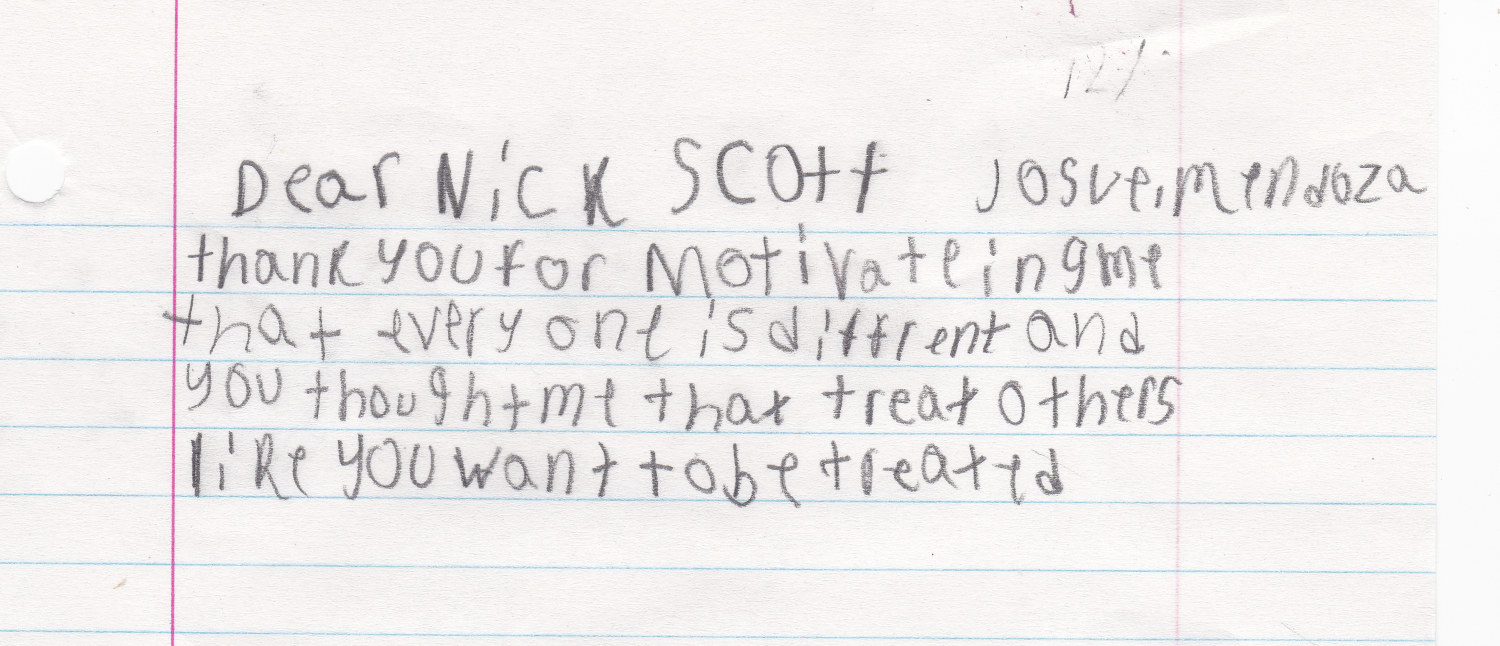 Dear Nick Scott Josue, Mendoza
thank you for Motivateing me
that every one is diffrent and
you thought me that treat others
like you want to be treated